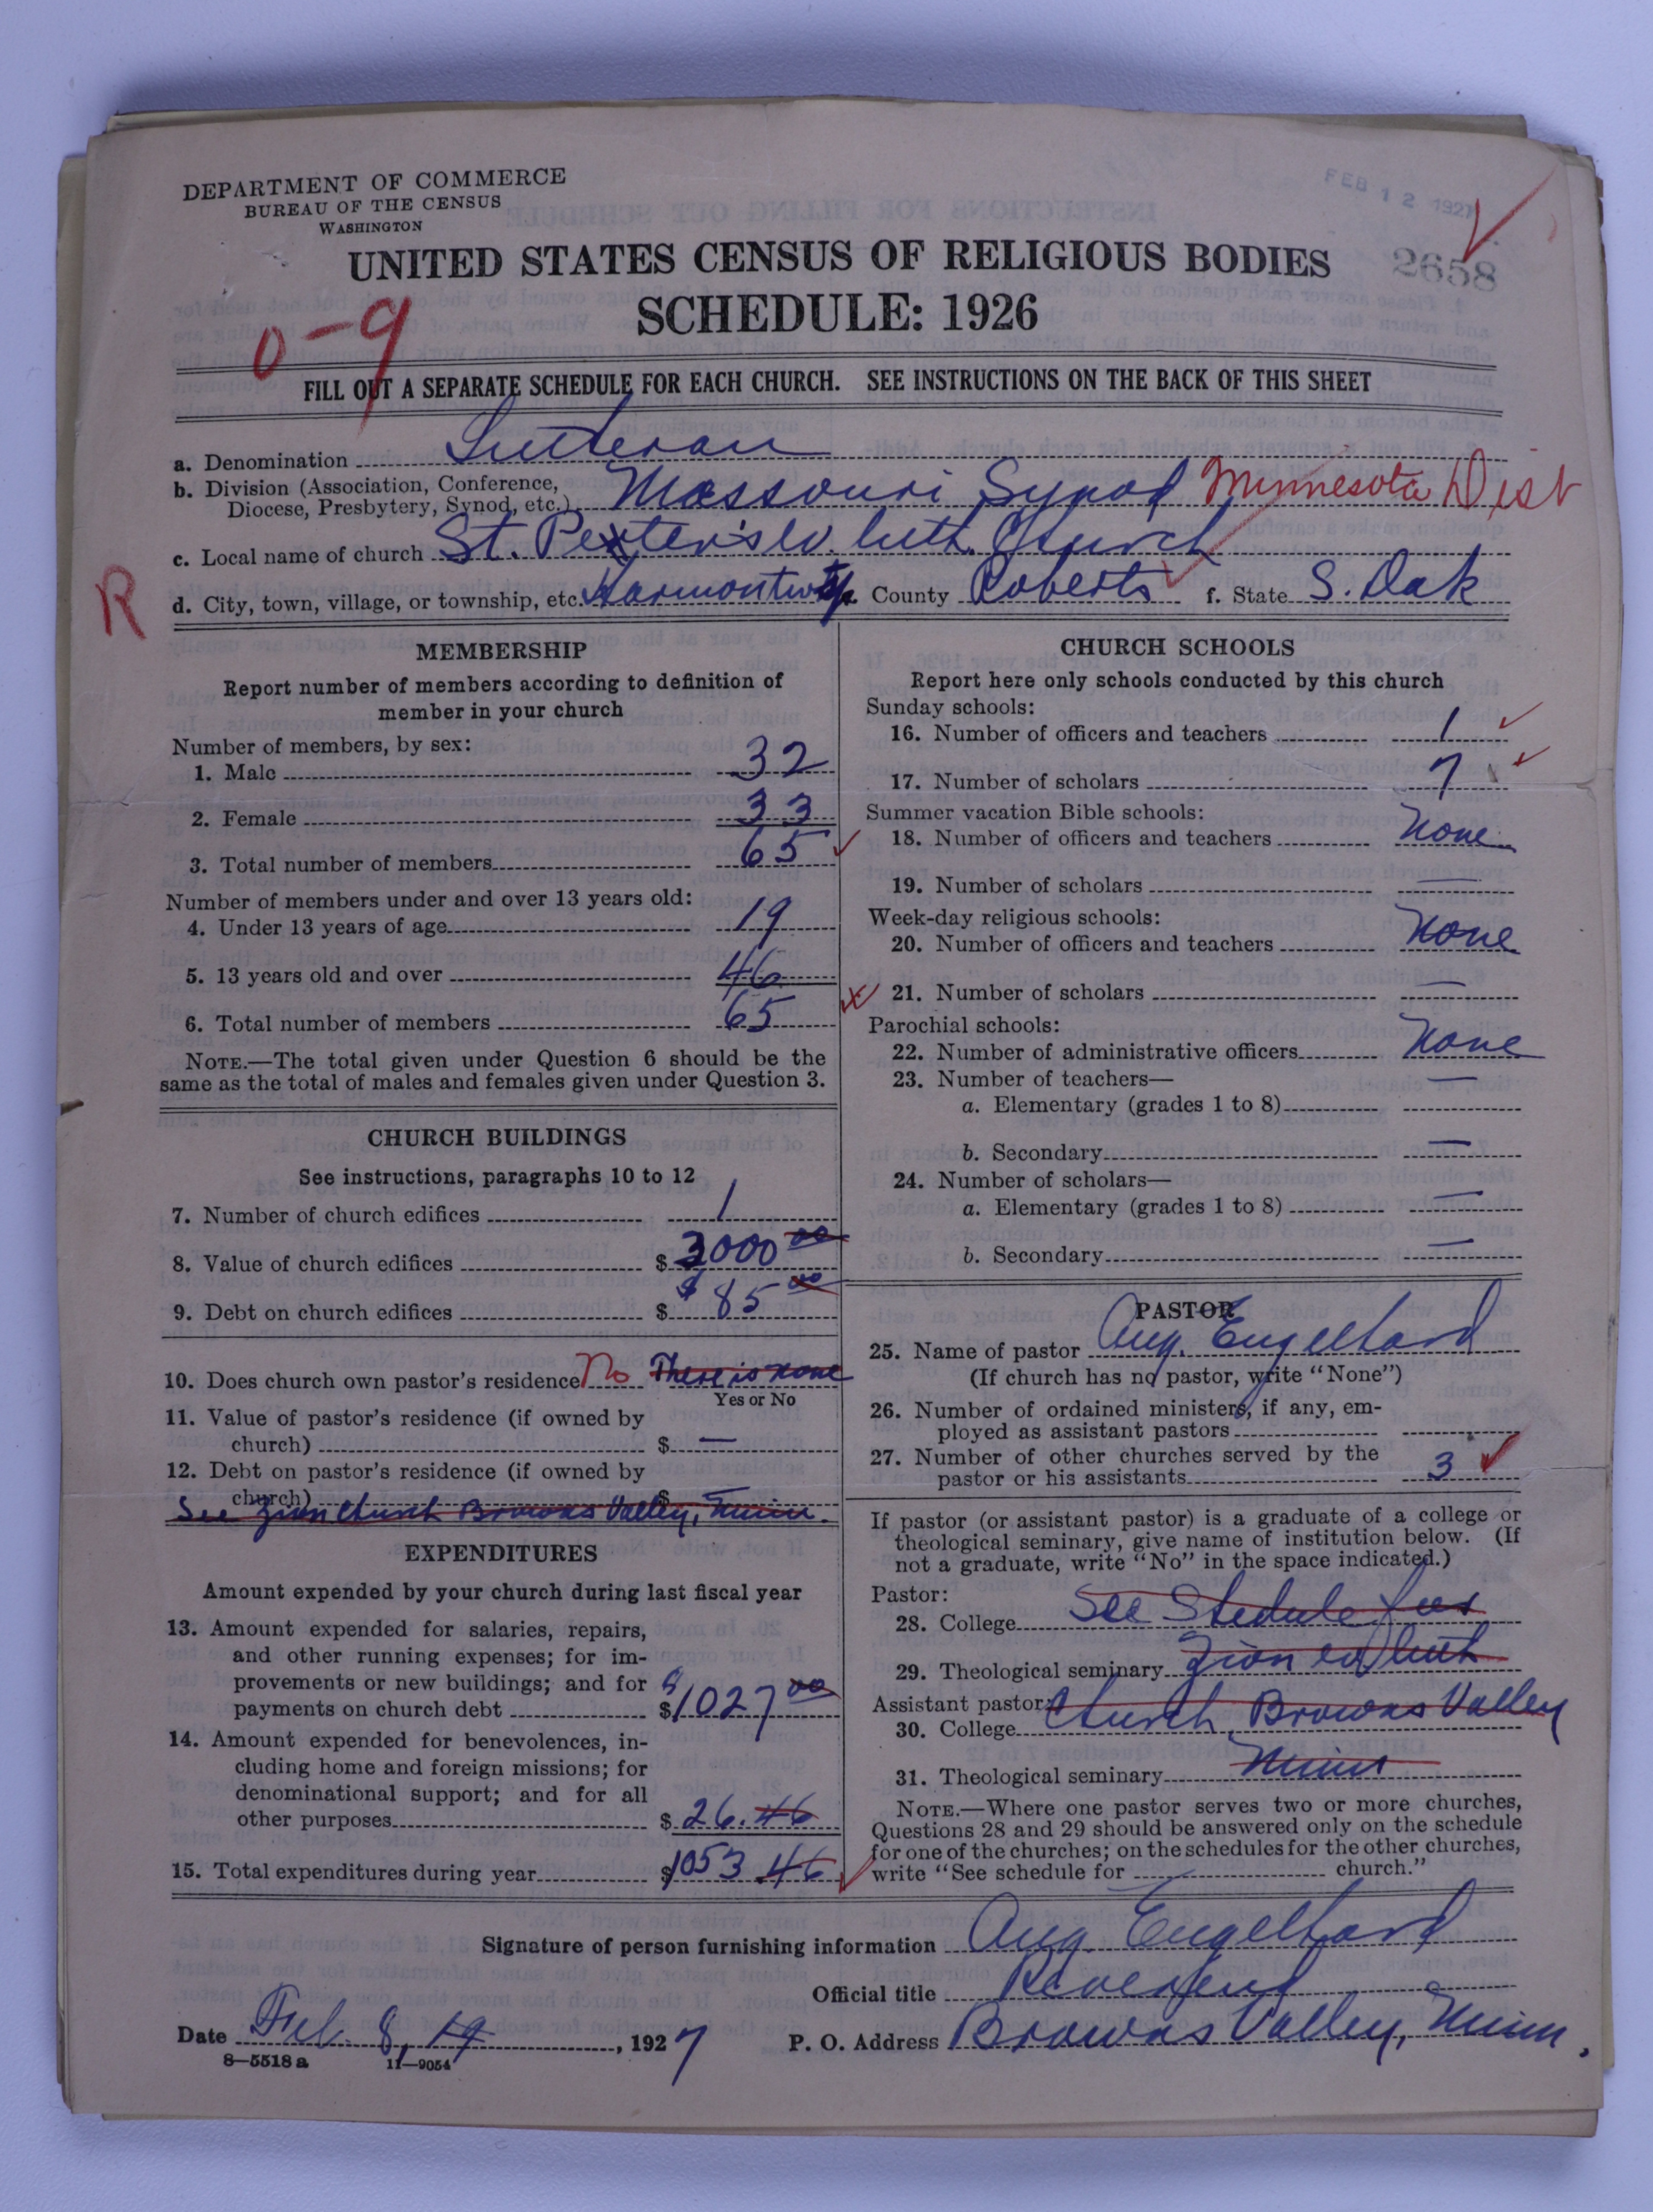 DEPARTMENT OF COMMERCE
BUREAU OF THE CENSUS
WASHINGTON
FEB 12 1927
2658
UNITED STATES CENSUS OF RELIGIOUS BODIES
SCHEDULE: 1926
0-9
FILL OUT A SEPARATE SCHEDULE FOR EACH CHURCH. SEE INSTRUCTIONS ON THE BACK OF THIS SHEET
a. Denomination Lutheran
b. Division (Association, Conference, Diocese, Presbytery, Synod, etc.) Missouri Synod Minnesota Dist
c. Local name of church St. Peter's ev. luth. Church
R
d. City, town, village, or township, etc. Harmon twp. County Roberts f. State S. Dak
MEMBERSHIP
Report number of members according to definition of
member in your church
Number of members, by sex:
1. Male 32
2. Female 33
3. Total number of members 65
Number of members under and over 13 years old:
4. Under 13 years of age 19
5. 13 years old and over 46
6. Total number of members 65
NOTE.—The total given under Question 6 should be the
same as the total of males and females given under Question 3.
CHURCH BUILDINGS
See instructions, paragraphs 10 to 12
7. Number of church edifices 1
8. Value of church edifices $ 3000 00
9. Debt on church edifices $ $85 00
10. Does church own pastor's residence No There is none
Yes or No
11. Value of pastor's residence (if owned by
church) $ —
12. Debt on pastor's residence (if owned by
church) $ —
See Zion Church Browns Valley, Minn.
EXPENDITURES
Amount expended by your church during last fiscal year
13. Amount expended for salaries, repairs,
and other running expenses; for im-
provements or new buildings; and for
payments on church debt $ $1027 00
14. Amount expended for benevolences, in-
cluding home and foreign missions; for
denominational support; and for all
other purposes $ 26.46
15. Total expenditures during year $ 1053.46
CHURCH SCHOOLS
Report here only schools conducted by this church
Sunday schools:
16. Number of officers and teachers 1
17. Number of scholars 7
Summer vacation Bible schools:
18. Number of officers and teachers None
19. Number of scholars —
Week-day religious schools:
20. Number of officers and teachers None
21. Number of scholars —
Parochial schools:
22. Number of administrative officers None
23. Number of teachers—
a. Elementary (grades 1 to 8) —
b. Secondary —
24. Number of scholars—
a. Elementary (grades 1 to 8) —
b. Secondary —
PASTOR
25. Name of pastor Aug. Engelhard
(If church has no pastor, write "None")
26. Number of ordained ministers, if any, em-
ployed as assistant pastors
27. Number of other churches served by the
pastor or his assistants 3
If pastor (or assistant pastor) is a graduate of a college or
theological seminary, give name of institution below. (If
not a graduate, write "No" in the space indicated.)
Pastor:
28. College See Shedule for
29. Theological seminary Zion ev luth
Assistant pastor:
30. College Church, Browns Valley
31. Theological seminary Minn
NOTE.—Where one pastor serves two or more churches,
Questions 28 and 29 should be answered only on the schedule
for one of the churches; on the schedules for the other churches,
write "See schedule for church."
Signature of person furnishing information Aug. Engelhard
Official title Reverend
Date Feb. 8, 19, 1927 P. O. Address Browns Valley, Minn.
8—5518 a 11—9054